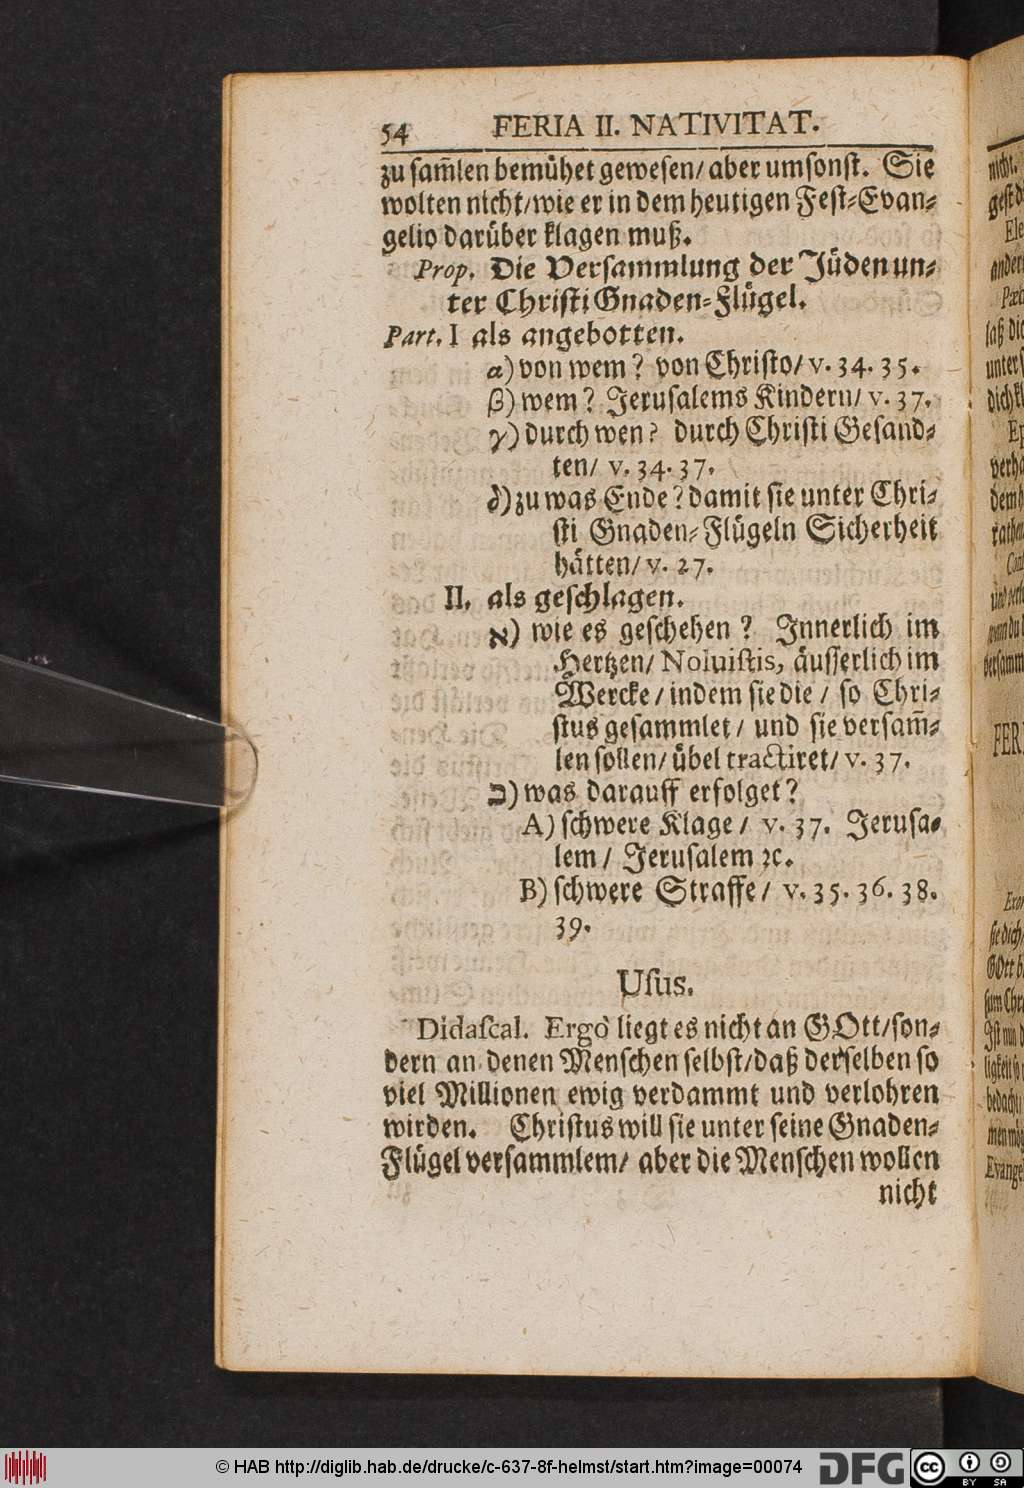 54 FERIA II. NATIVITAT.
zu sam̃len bemühet gewesen/ aber umsonst. Sie
wolten nicht/ wie er in dem heutigen Fest-Evan-
gelio darüber klagen muß.
Prop. Die Versammlung der Jüden un-
ter Christi Gnaden-Flügel.
Part. I als angebotten.
α) von wem? von Christo/ v. 34. 35.
β) wem? Jerusalems Kindern/ v. 37.
γ) durch wen? durch Christi Gesand-
ten/ v. 34. 37.
δ) zu was Ende? damit sie unter Chri-
sti Gnaden-Flügeln Sicherheit
hätten/ v. 27.
II. als geschlagen.
א) wie es geschehen? Innerlich im
Hertzen/ Noluistis, äusserlich im
Wercke/ indem sie die/ so Chri-
stus gesammlet/ und sie versam̃-
len sollen/ übel tractiret/ v. 37.
ב) was darauff erfolget?
A) schwere Klage/ v. 37. Jerusa-
lem/ Jerusalem ꝛc.
B) schwere Straffe/ v. 35. 36. 38.
39.
Usus.
Didascal. Ergò liegt es nicht an GOtt/ son-
dern an denen Menschen selbst/ daß derselben so
viel Millionen ewig verdammt und verlohren
wirden. Christus will sie unter seine Gnaden-
Flügel versammlem/ aber die Menschen wollen
nicht
© HAB http://diglib.hab.de/drucke/c-637-8f-helmst/start.htm?image=00074 DFG cc BY SA